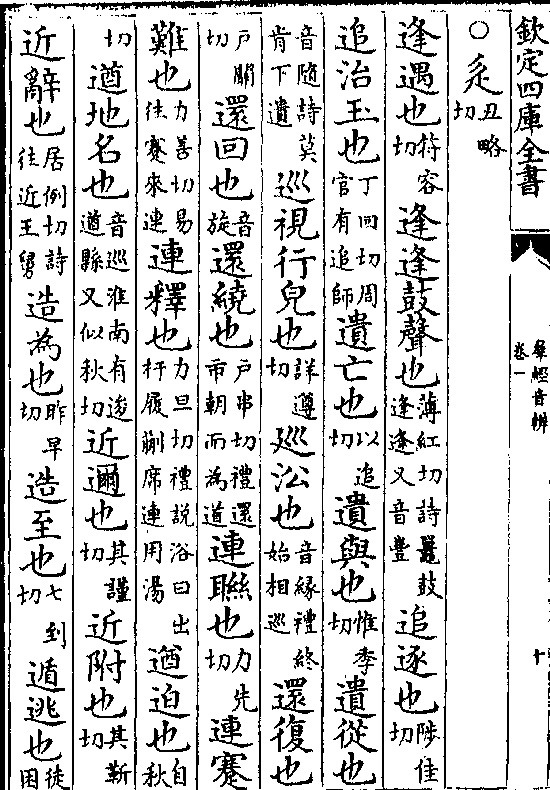 欽定四庫全書 羣經音辨卷一 十
○辵丑略切
逢遇也符容切逢逢鼓聲也薄紅切詩鼉鼓逢逢又音豐追逐也陟佳切
追治玉也丁回切周官有追師遺亡也以追切遺與也惟季切遺從也
音隨詩莫肯下遺巡視行皃也詳遵切巡㳂也音緣禮終始相巡還復也
戶關切還回也音旋還繞也戶串切禮還市朝而為道連聯也力先切連蹇
難也力善切易往蹇來連連釋也力旦切禮說浴曰出杅履蒯席連用湯遒迫也自秋
切遒地名也音巡淮南有逡遒縣又似秋切近邇也其謹切近附也其靳切
近辭也居例切詩往近王舅造為也昨早切造至也七到切遁逃也徒困